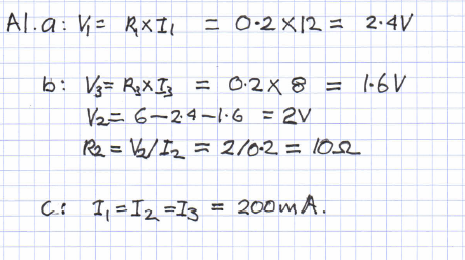 A1.a: V₁ = R₁×I₁ = 0.2×12 = 2.4V
b: V₃ = R₃×I₃ = 0.2×8 = 1.6V
V₂ = 6-2.4-1.6 = 2V
R₂ = V₂/I₂ = 2/0.2 = 10Ω
C: I₁=I₂=I₃ = 200mA.